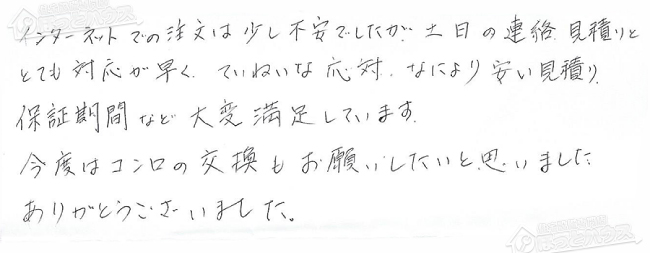 インターネットでの注文は少し不安でしたが土日の連絡、見積りと
とても対応が早く、ていねいな応対、なにより安い見積り、
保証期間など大変満足しています。
今度はコンロの交換もお願いしたいと思いました
ありがとうございました。